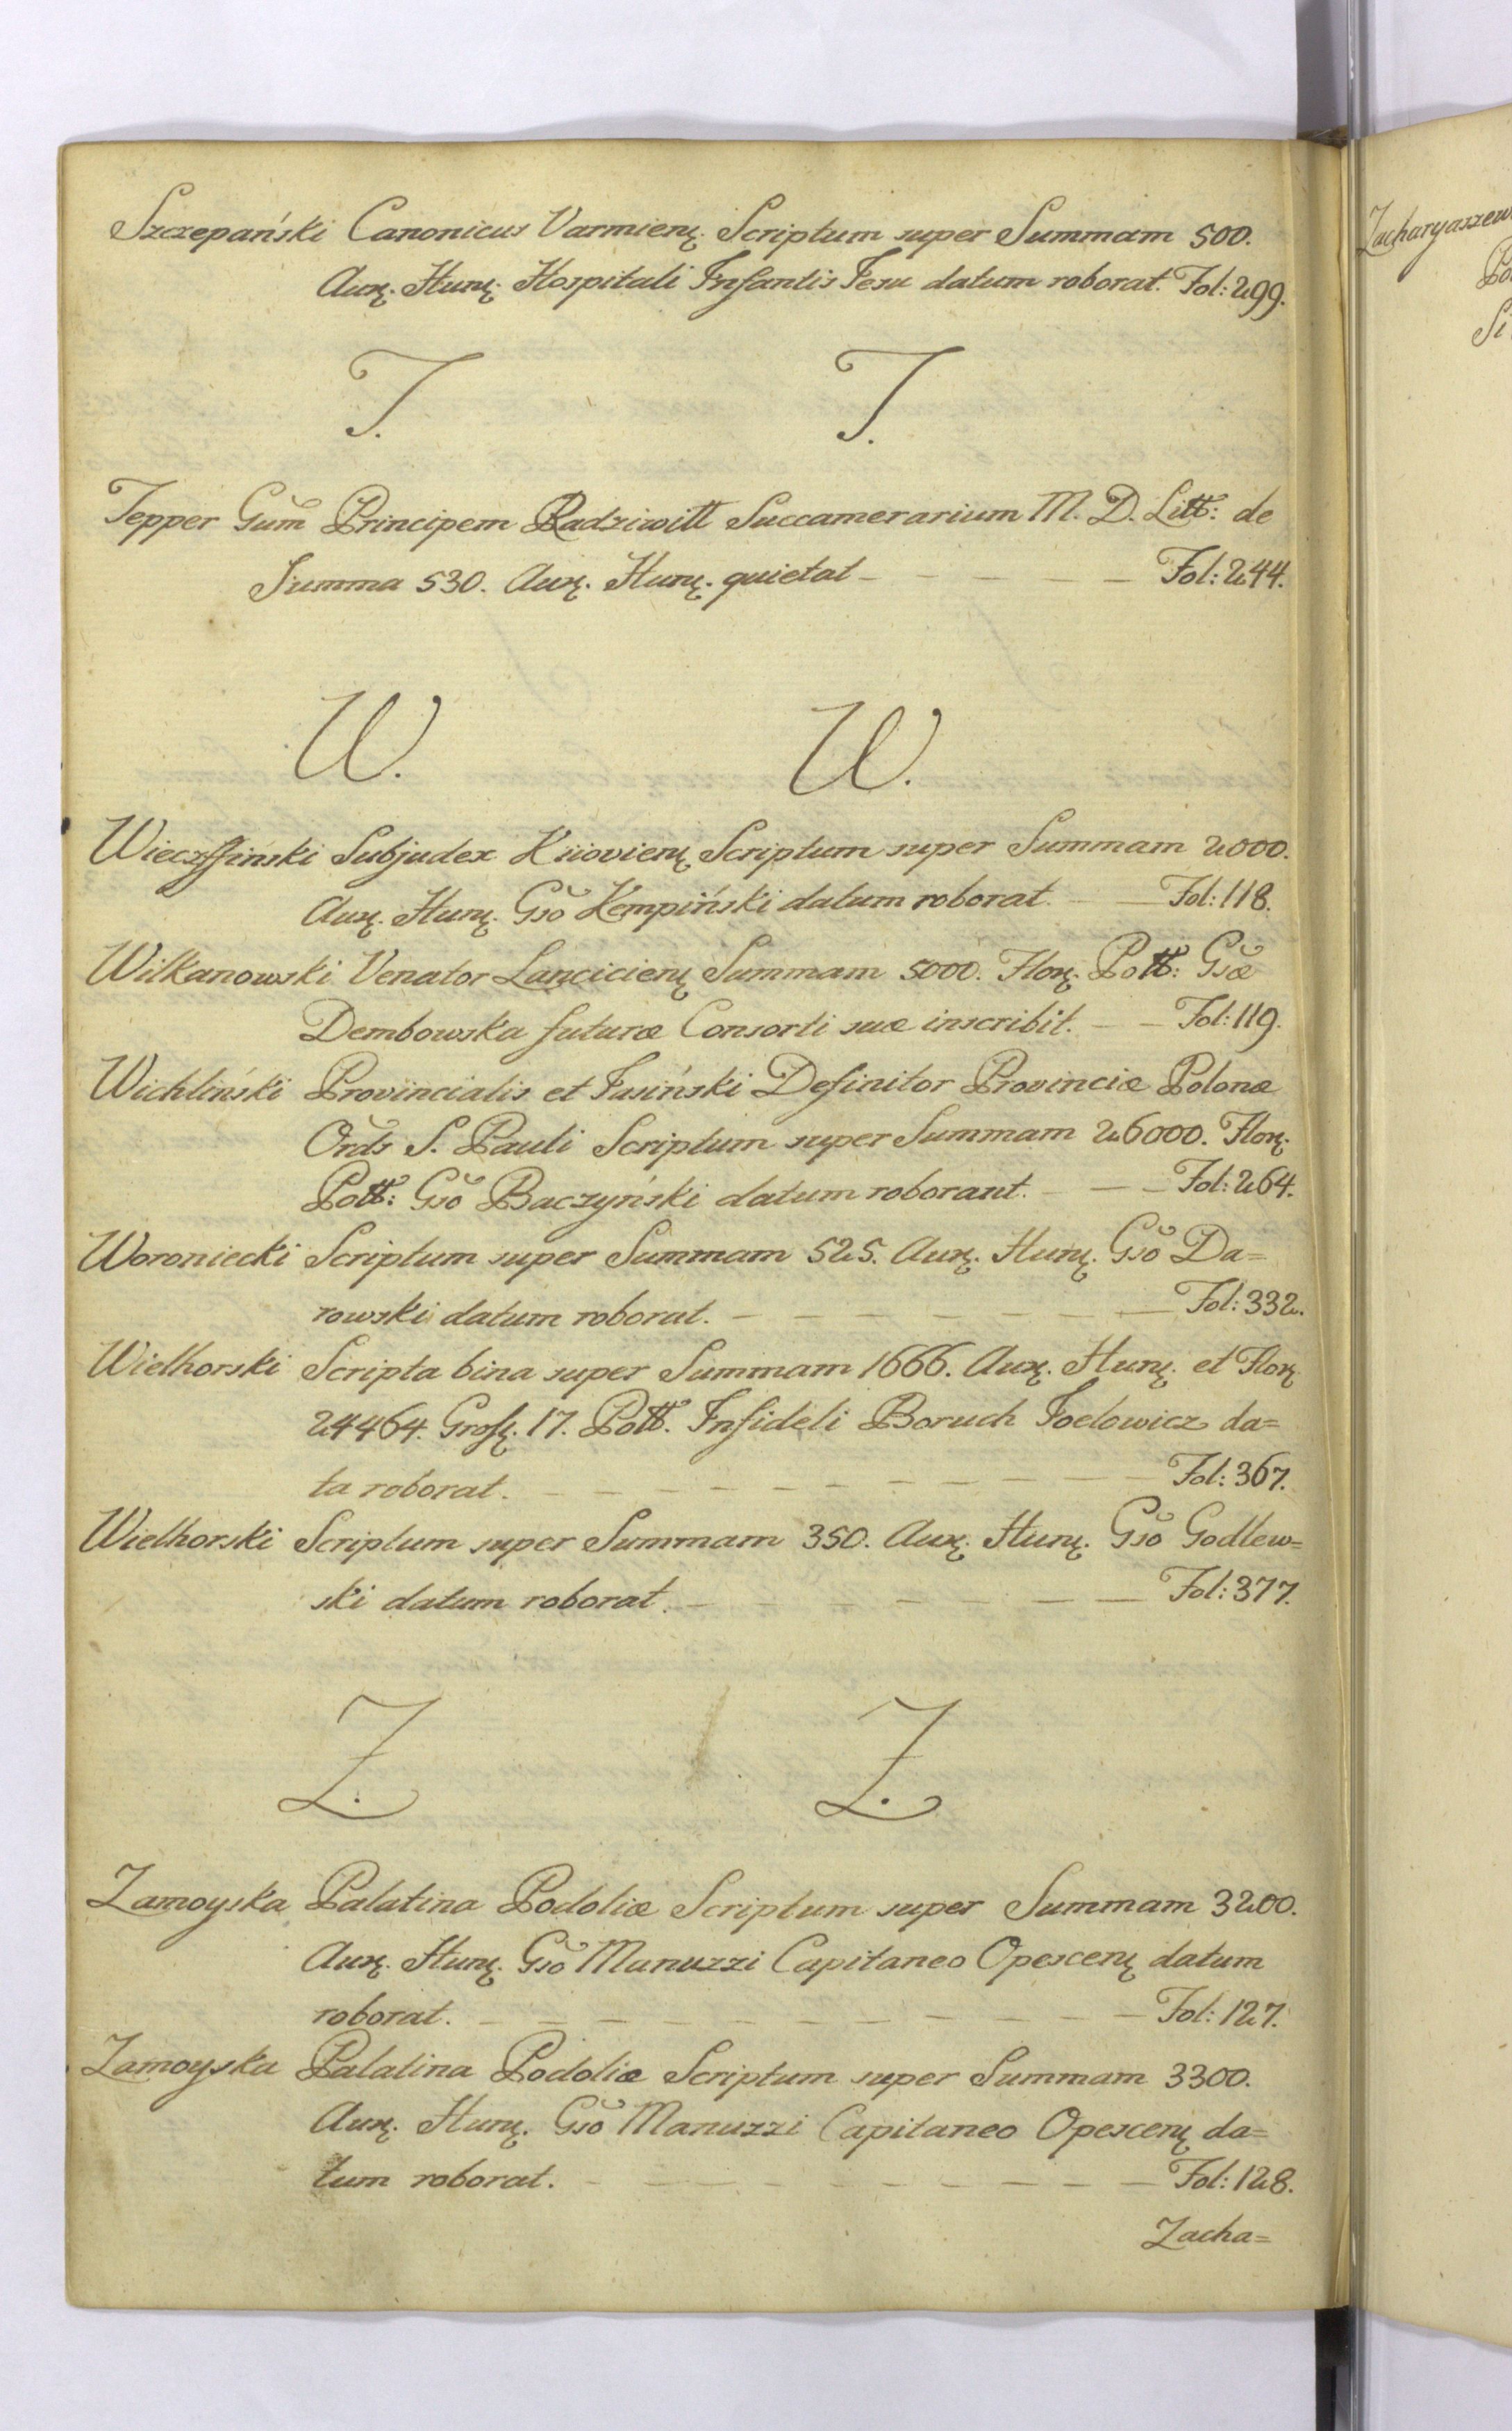 Szczepański Canonicus Varmien: Scriptum super Summam 500.
Aur: Hun: Hospitali Infantis Jesu datum roborat. Fol: 299.
T. T.
Tepper Gŭm Principem Radziwiłł Succamerarium M. D. Litt: de
Summa 530. Aur: Hun: quietat — — — — — Fol: 244.
W. W.
Wieczffiński Subjudex Kiiovien: Scriptum super Summam 2000.
Aur: Hun: Gsŏ Kempiński datum roborat. — — Fol: 118.
Wilkanowski Venator Lancicien: Summam 5000. Flor: Poll: Gsæ̆
Dembowska futuræ Consorti suæ inscribit. — — Fol: 119.
Wichliński Provincialis et Jasiński Definitor Provinciæ Polonæ
Ordŝ S. Pauli Scriptum super Summam 26000. Flor:
Poll: Gsŏ Baczyński datum roborant. — — — Fol: 264.
Woroniecki Scriptum super Summam 525. Aur: Hun: Gsŏ Da=
rowski datum roborat. — — — — — — — Fol: 332.
Wielhorski Scripta bina super Summam 1666. Aur: Hun: et Flor:
24464. Gross: 17. Poll. Infideli Boruch Joelowicz da=
ta roborat. — — — — — — — — — — Fol: 367.
Wielhorski Scriptum super Summam 350. Aur: Hun: Gsŏ Godlew=
ski datum roborat. — — — — — — — — Fol: 377.
Z. Z.
Zamoyska Palatina Podoliæ Scriptum super Summam 3200.
Aur: Hun: Gsŏ Manuzzi Capitaneo Opescen: datum
roborat. — — — — — — — — — — Fol: 127.
Zamoyska Palatina Podoliæ Scriptum super Summam 3300.
Aur: Hun: Gsŏ Manuzzi Capitaneo Opescen: da=
tum roborat. — — — — — — — — — Fol: 128.
Zacha=
Zacharyaszew